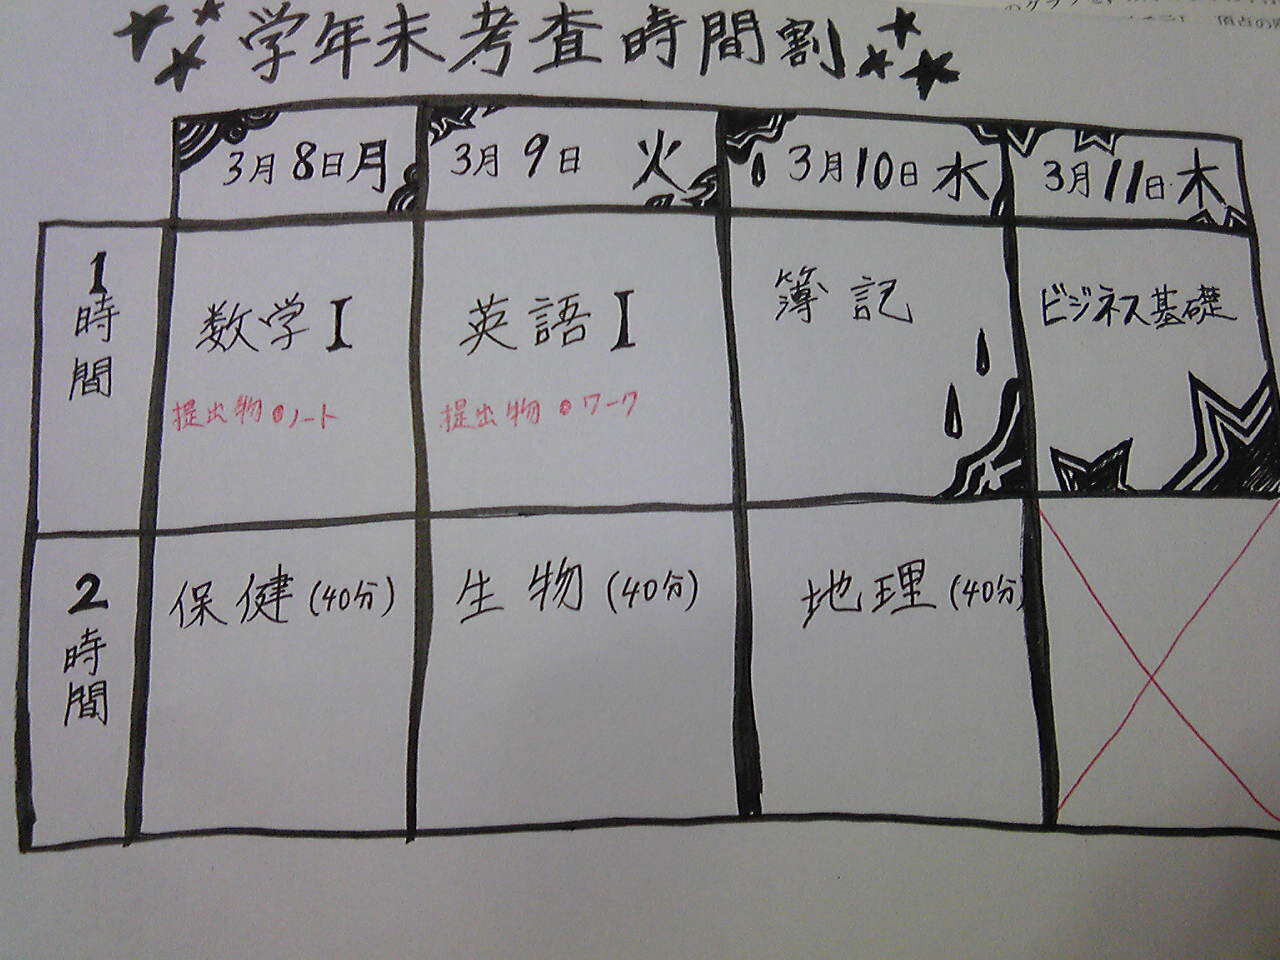 学年末考査時間割
3月8日月 3月9日 火 3月10日水 3月11日木
1時間 数学I 英語I 簿記 ビジネス基礎
提出物●ノート 提出物●ワーク
2時間 保健(40分) 生物(40分) 地理(40分)